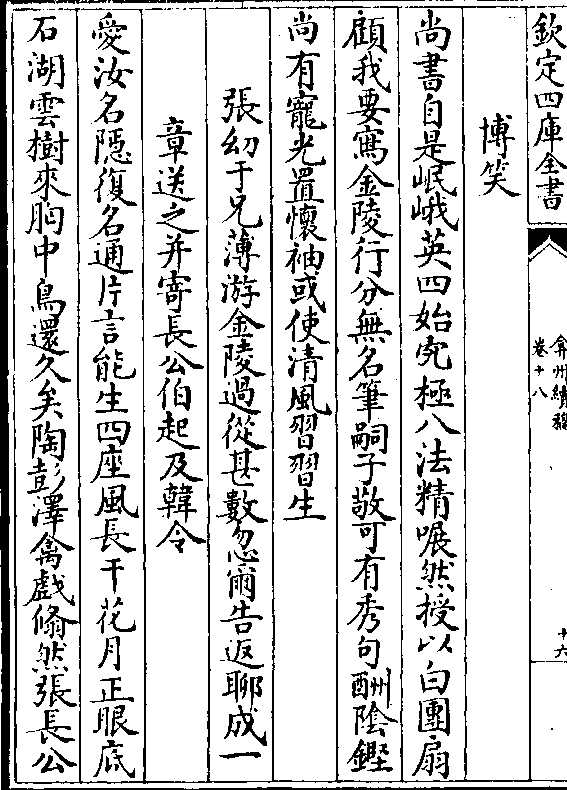 欽定四庫全書
弇州續稿
卷十八
十六
博笑
尚書自是岷峨英四始究極八法精囅然授以白團扇
顧我要寫金陵行分無名筆嗣子敬可有秀句酬陰鏗
尚有寵光置懷袖或使清風習習生
張幼于兄薄游金陵過從甚數忽爾告返聊成一
章送之并寄長公伯起及韓令
愛汝名隱復名通片言能生四座風長干花月正眼底
石湖雲樹來胸中鳥還久矣陶彭澤禽戲翛然張長公